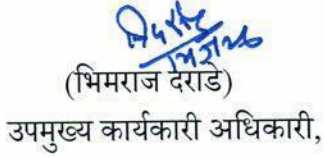 (भिमराज दराडे)
उपमुख्य कार्यकारी अधिकारी,